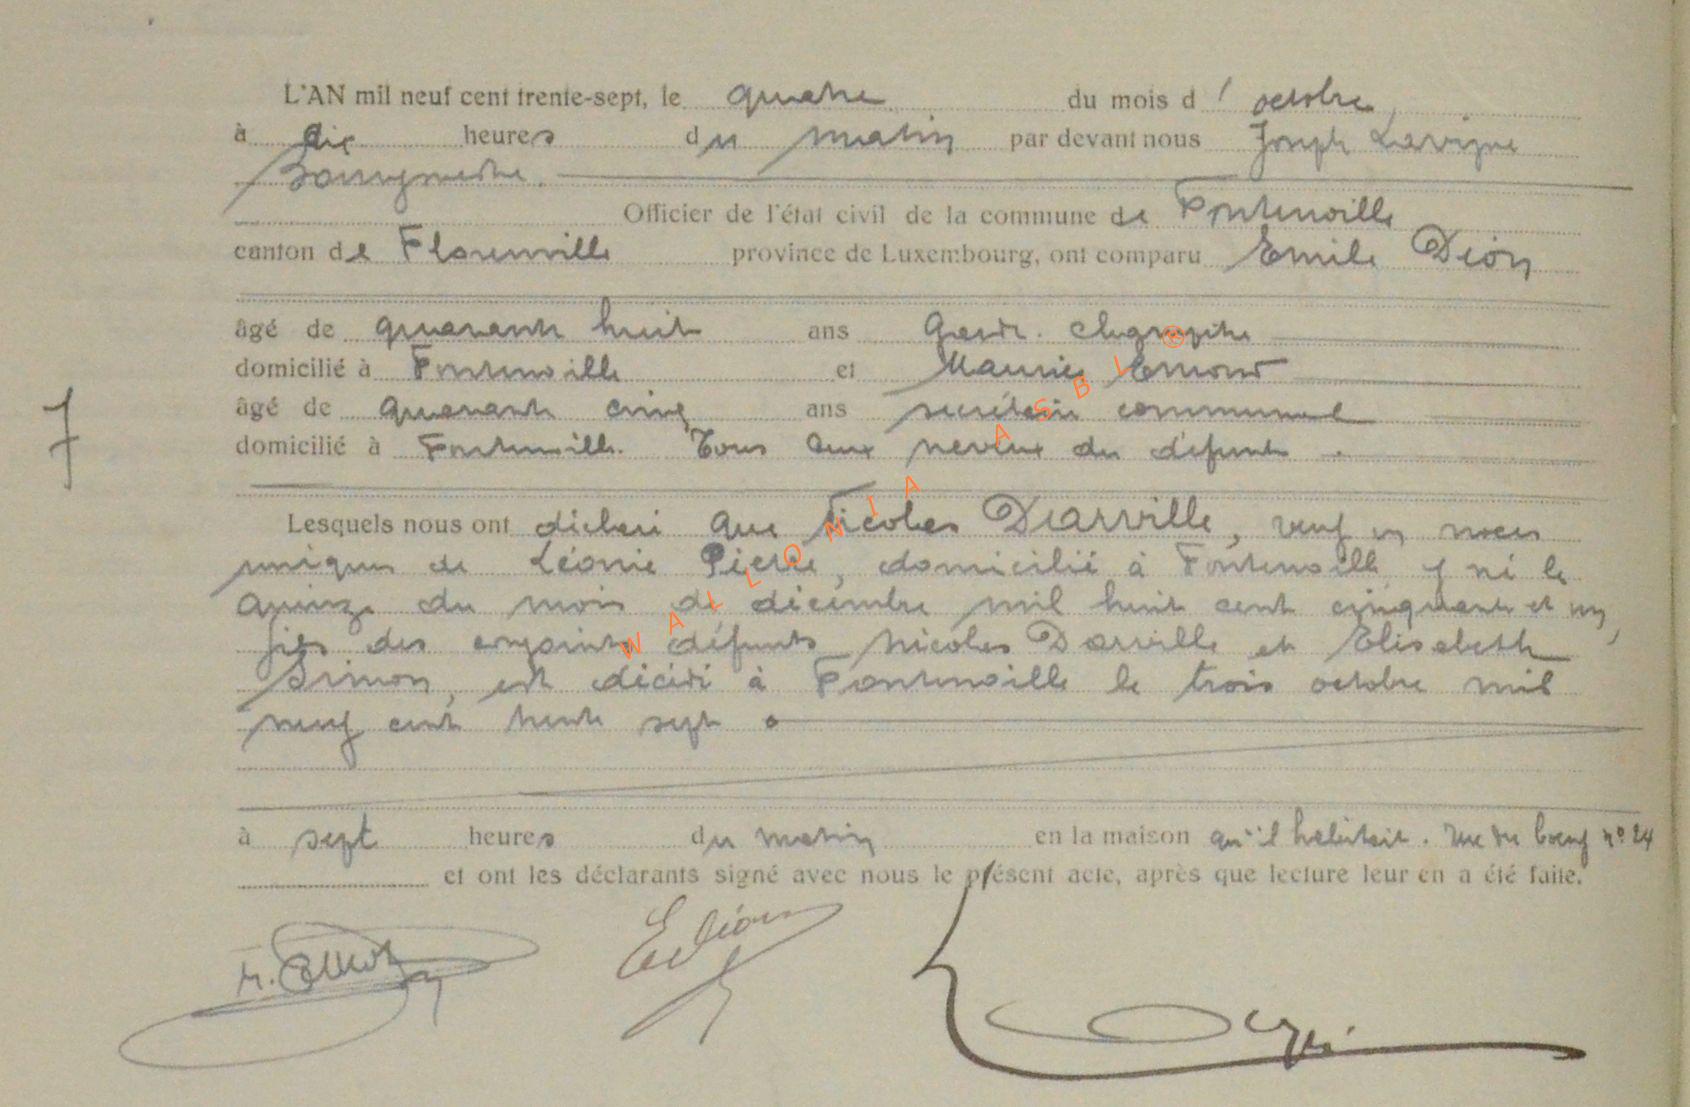 L'AN mil neuf cent trente-sept, le quatre du mois d' octobre
à dix heures du matin par devant nous Joseph Lavigne
Bourgmestre.
Officier de l'état civil de la commune de Fontenoille
canton de Florenville province de Luxembourg, ont comparu Emile Dion
âgé de quarante huit ans Garde. champêtre
domicilié à Fontenoille et Maurice Emond
âgé de quarante cinq ans secrétaire communal
domicilié à Fontenoille. Tous deux neveux du défunt.
7
Lesquels nous ont déclaré que Nicolas Darville, veuf en noces
uniques de Léonie Pierre, domicilié à Fontenoille y né le
quinze du mois de décembre mil huit cent cinquante et un,
fils des conjoints défunts Nicolas Darville et Elisabeth
Simon, est décédé à Fontenoille le trois octobre mil
neuf cent trente sept
à sept heures du matin en la maison qu'il habitait. rue du boeuf nº 24
et ont les déclarants signé avec nous le présent acte, après que lecture leur en a été faite.
M. Emond EDion
WALLONIA ASBL ®